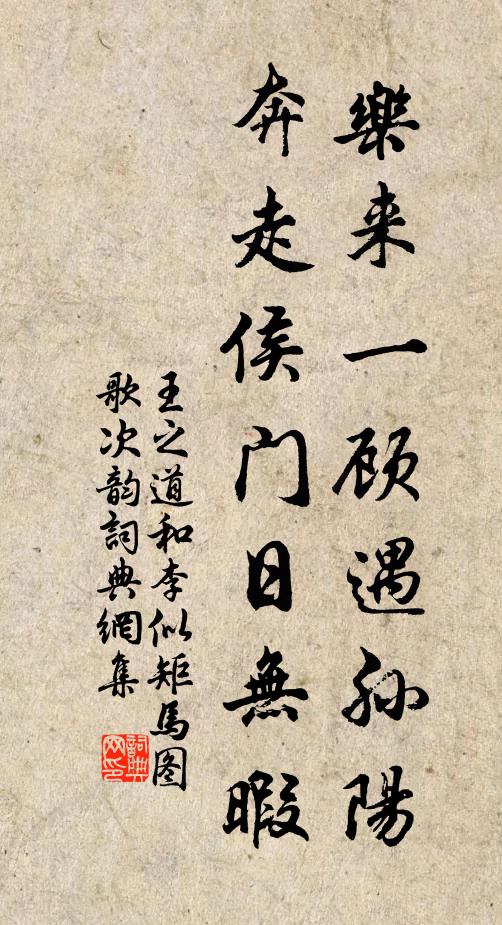 樂来一顾遇孙陽
奔走侯門日無暇
王之道和李似矩馬图
歌次韵詞典網集
詞典網印